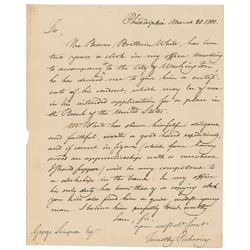 Philadelphia March 20. 1800.
Sir,
The Bearer Brittain White, has been
two years a clerk in my office. Unwilling
to accompany to the City of Washington,
he has desired me to give him a certifi-
cate of his conduct, which may be of use
in his intended application for a place in
the Bank of the United States.
Mr White has shewn himself diligent
and faithful, writes a good hand expeditiously,
and is correct in figures; which from having
served an apprenticeship with a merchant
will be no experience
clerkship in the bank. In my office
his only duty has been that of a copying clerk.
you will also find him a quiet, modest young
man. I believe him perfectly trust worthy.
I am, Sir,
Your most obt servt.
Timothy Pickering
George Simpson Esqr.